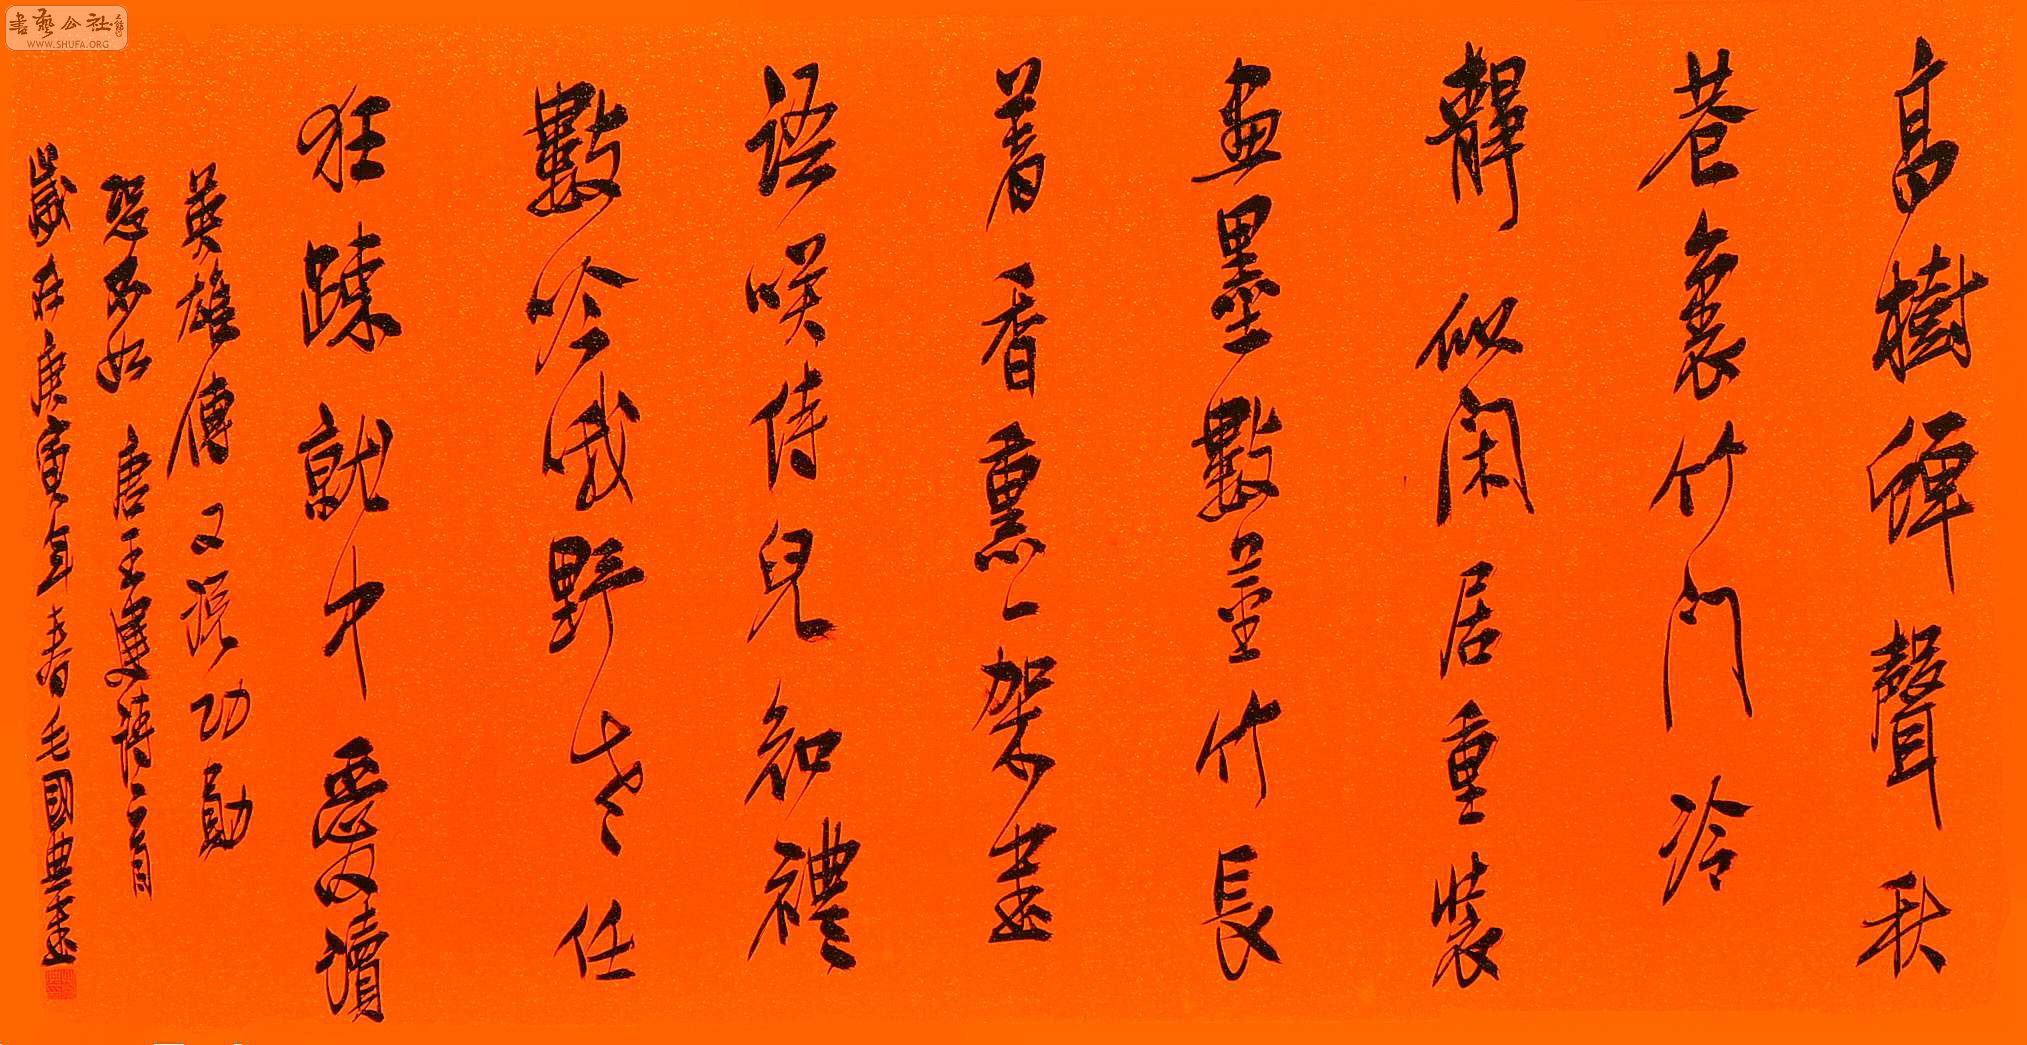 書藝公社
WWW.SHUFA.ORG
高樹蟬聲秋
巷裏竹門冷
靜似閑居重裝
畫墨數莖竹長
著香熏一架書
語笑侍兒知禮
數吟哦野老任
狂疎就中愛讀
英雄傳又功勳
恐不如 唐王建詩一首
歲在庚寅年春毛國典書